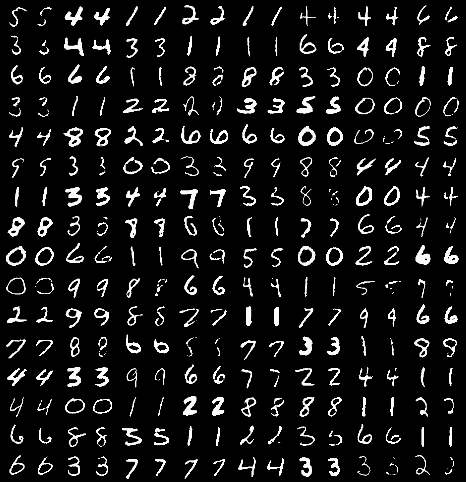 5 5 4 4 1 1 2 2 1 1 4 4 4 4 6 6
3 3 4 4 3 3 1 1 1 1 6 6 4 4 8 8
6 6 6 6 1 1 8 8 8 8 3 3 0 0 1 1
3 3 1 1 2 2 2 2 3 3 5 5 0 0 0 0
4 4 8 8 2 2 6 6 6 6 0 0 0 0 5 5
9 9 3 3 0 0 3 3 9 9 8 8 4 4 4 4
1 1 3 3 4 4 7 7 3 3 8 8 0 0 4 4
8 8 3 3 8 8 6 6 1 1 7 7 6 6 4 4
0 0 6 6 1 1 9 9 5 5 0 0 2 2 6 6
0 0 9 9 8 8 6 6 4 4 1 1 5 5 7 7
2 2 9 9 8 8 7 7 1 1 7 7 9 9 6 6
7 7 8 8 6 6 5 5 7 7 3 3 1 1 8 8
4 4 3 3 9 9 6 6 7 7 2 2 4 4 1 1
4 4 0 0 1 1 2 2 8 8 8 8 1 1 2 2
6 6 8 8 5 5 1 1 2 2 3 3 6 6 1 1
6 6 3 3 7 7 7 7 4 4 3 3 3 3 2 2